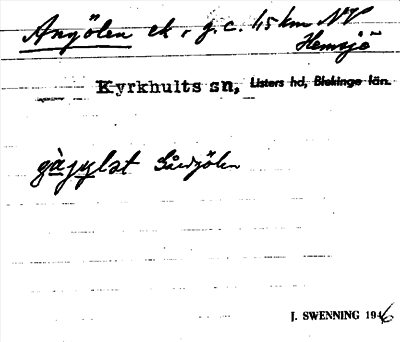 Angölen ek, g. c. 1,5 km NV
Hemsjö
Kyrkhults sn, Listers hd, Blekinge län.
gàgylst Gårdgölen
J. SWENNING 1946